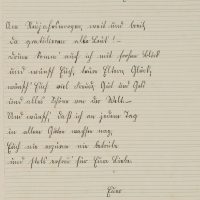 Am Neujahrsmorgen, weit und breit,
da gratulieren alle Leut'! –
Drum komm auch ich mit frohem Blick
und wünsch' Euch, teure Eltern, Glück,
wünsch' Euch viel Freud, Gut und Geld
und alles Schöne von der Welt. –
Und wünsch', daß ich an jedem Tag
in allem Guten wachsen mag,
Euch nie
und stets
Eure